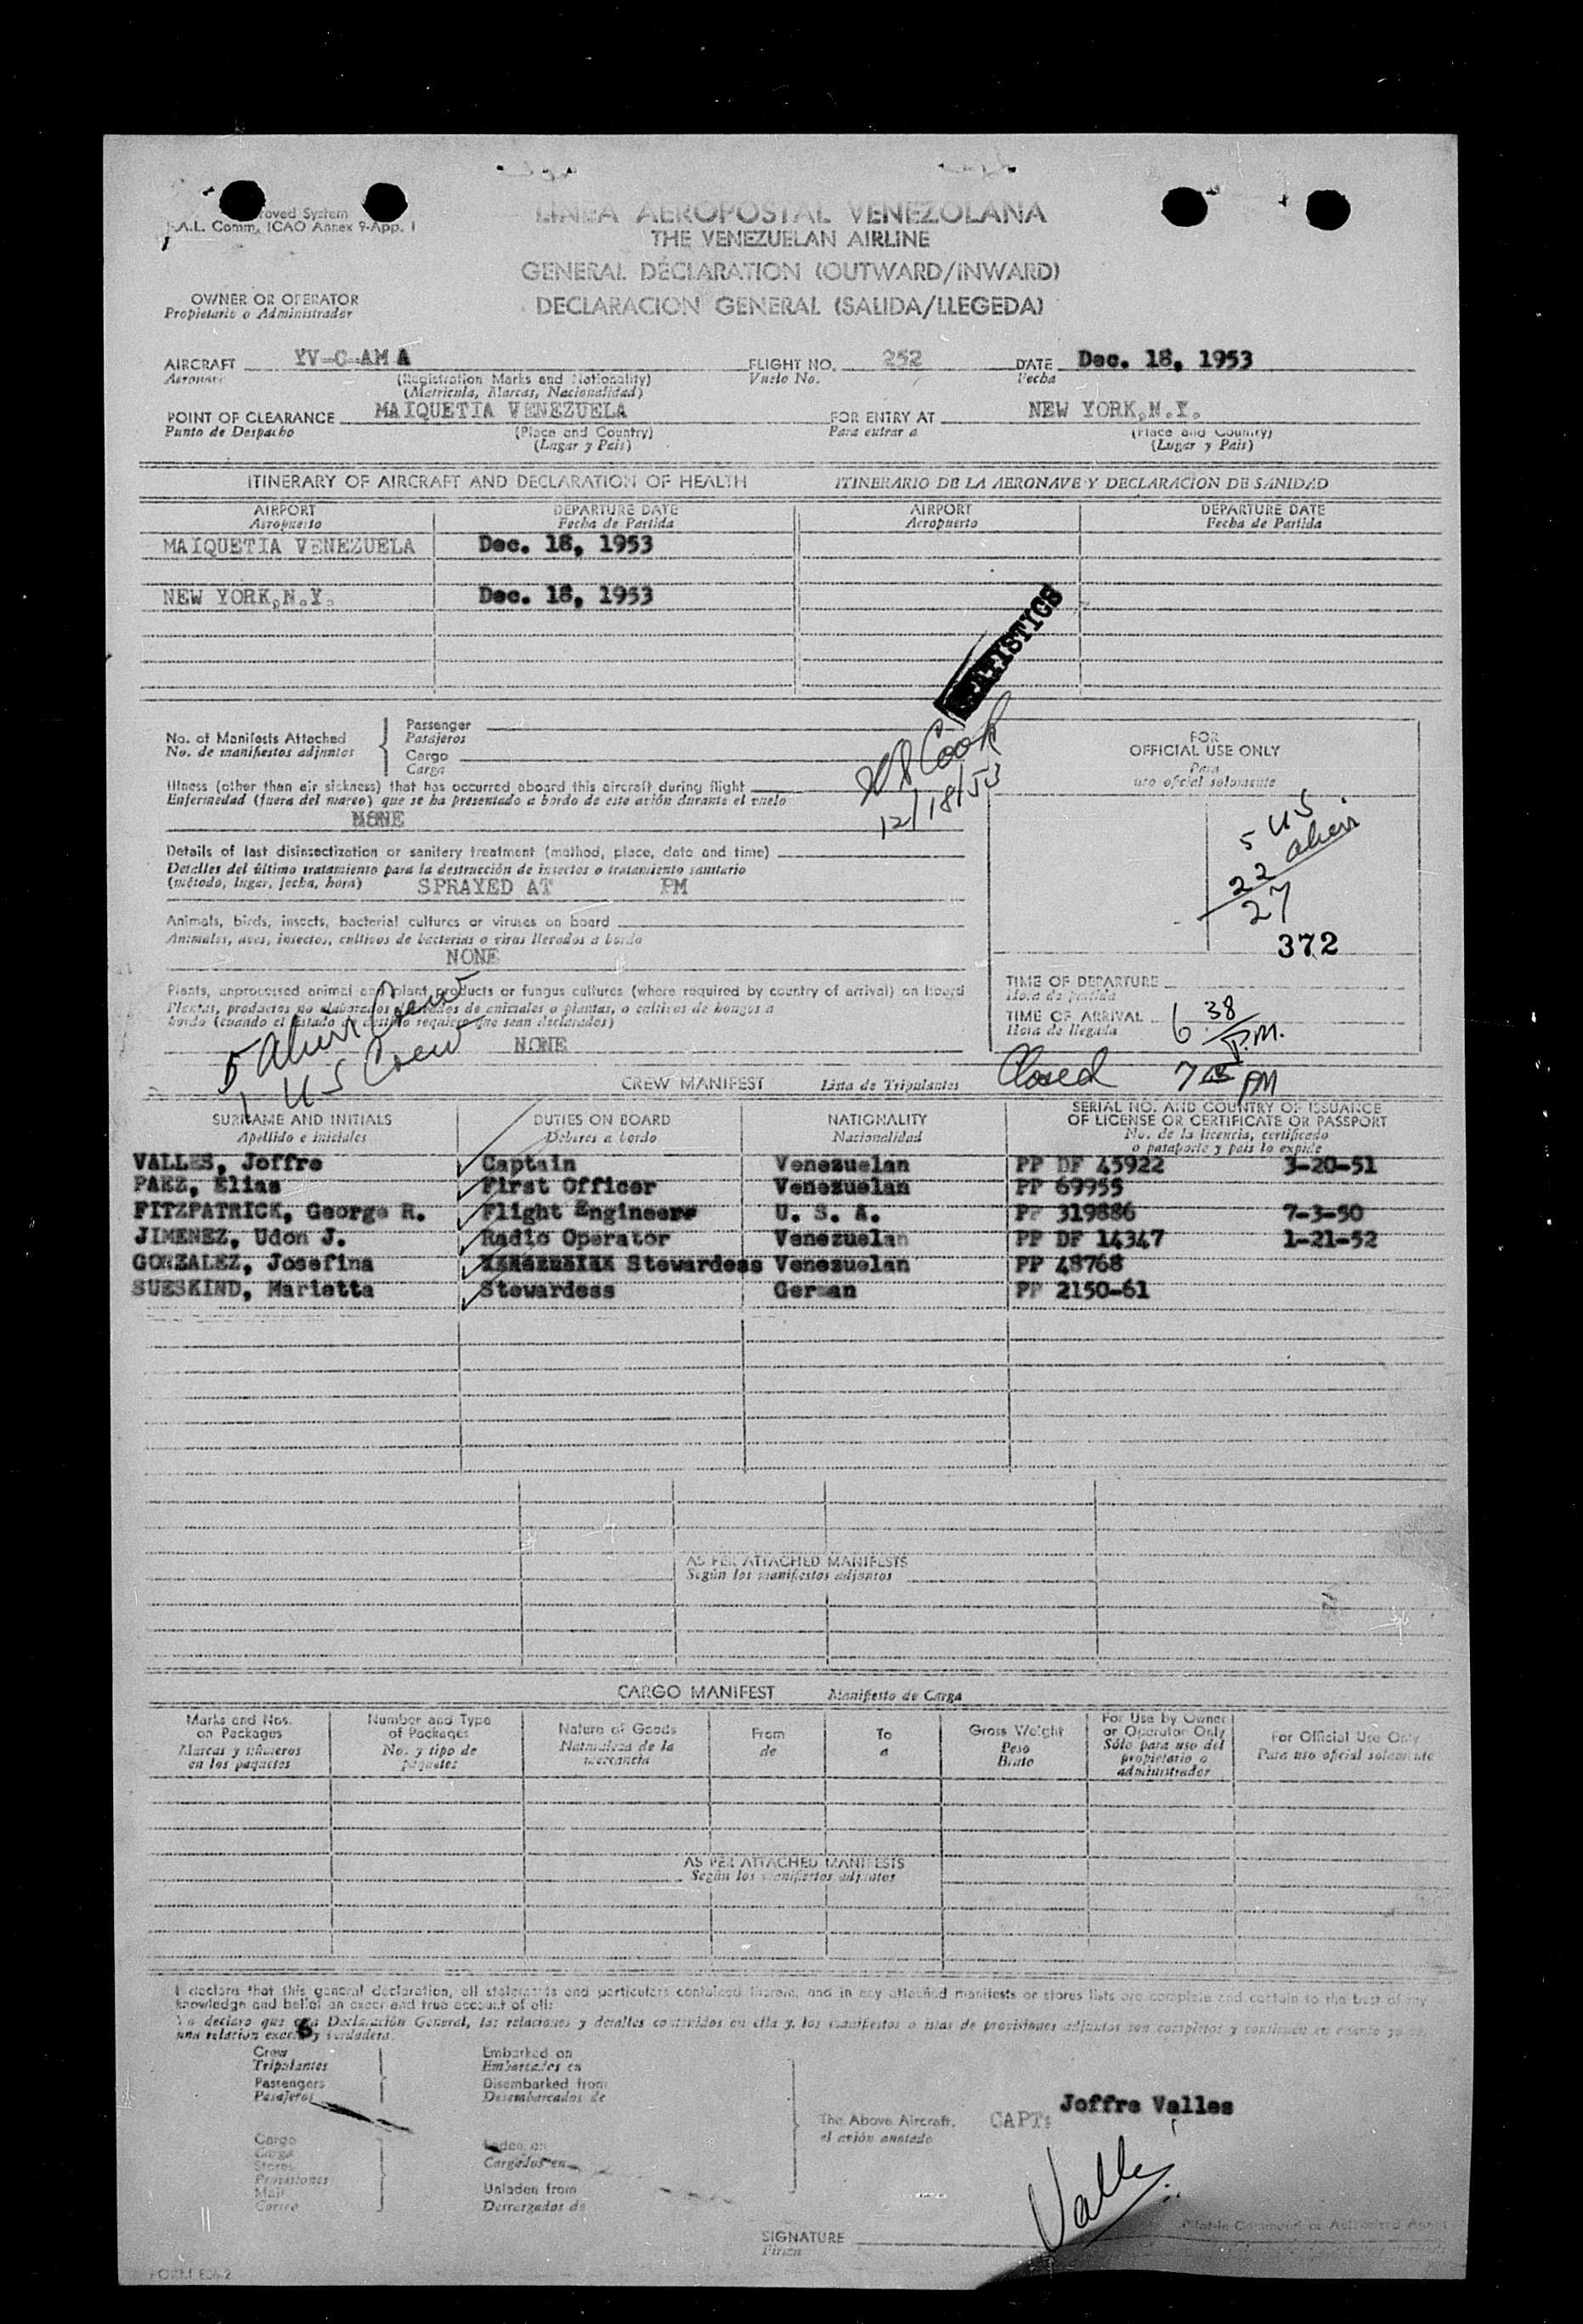 roved System
F.A.L. Comm. ICAO Annex 9-App. 1
LINEA AEROPOSTAL VENEZOLANA
THE VENEZUELAN AIRLINE
GENERAL DECLARATION (OUTWARD/INWARD)
DECLARACION GENERAL (SALIDA/LLEGEDA)
OWNER OR OPERATOR
Propietario o Administrador
AIRCRAFT YV-C-AMA FLIGHT NO. 252 DATE Dec. 18, 1953
Aeronave (Registration Marks and Nationality) Vuelo No. Fecha
(Matricula, Marcas, Nacionalidad)
POINT OF CLEARANCE MAIQUETIA VENEZUELA FOR ENTRY AT NEW YORK,N.Y.
Punto de Despacho (Place and Country) Para entrar a (Place and Country)
(Lugar y Pais) (Lugar y Pais)
ITINERARY OF AIRCRAFT AND DECLARATION OF HEALTH ITINERARIO DE LA AERONAVE Y DECLARACION DE SANIDAD
AIRPORT DEPARTURE DATE AIRPORT DEPARTURE DATE
Aeropuerto Fecha de Partida Aeropuerto Fecha de Partida
MAIQUETIA VENEZUELA Dec. 18, 1953
NEW YORK,N.Y. Dec. 18, 1953
STATISTICS
Cook
12/18/53
No. of Manifests Attached
No. de manifiestos adjuntos
Passenger
Pasajeros
Cargo
Carga
FOR
OFFICIAL USE ONLY
Para
uso oficial solamente
Illness (other than air sickness) that has occurred aboard this aircraft during flight
Enfermedad (fuera del mareo) que se ha presentado a bordo de este avión durante el vuelo
NONE
5 US
22 alien
27
372
Details of last disinsectization or sanitery treatment (method, place, date and time)
Detalles del último tratamiento para la destrucción de insectos o tratamiento sanitario
(método, lugar, fecha, hora) SPRAYED AT PM
Animals, birds, insects, bacterial cultures or viruses on board
Animales, aves, insectos, cultivos de bacterias o virus llevados a bordo
NONE
Plants, unprocessed animal and plant products or fungus cultures (where required by country of arrival) on board
Plantas, productos no elaborados derivados de animales o plantas, o cultivos de hongos a
bordo (cuando el Estado de destino requiere que sean declarados)
NONE
5 alien Crew
1 US Crew
TIME OF DEPARTURE
Hora de partida
TIME OF ARRIVAL 6:38 P.M.
Hora de llegada
Closed 7 PM
CREW MANIFEST Lista de Tripulantes
SURNAME AND INITIALS DUTIES ON BOARD NATIONALITY SERIAL NO. AND COUNTRY OF ISSUANCE
OF LICENSE OR CERTIFICATE OR PASSPORT
Apellido e iniciales Deberes a bordo Nacionalidad No. de la licencia, certificado
o pasaporte y pais lo expide
VALLES, Joffre Captain Venezuelan PP DF 45922 3-20-51
PAEZ, Elias First Officer Venezuelan PP 69955
FITZPATRICK, George R. Flight Engineer U. S. A. PP 319886 7-3-50
JIMENEZ, Udon J. Radio Operator Venezuelan PP DF 14347 1-21-52
GONZALEZ, Josefina Stewardess Venezuelan PP 48768
SUESKIND, Marietta Stewardess German PP 2150-61
AS PER ATTACHED MANIFESTS
Según los manifiestos adjuntos
CARGO MANIFEST Manifiesto de Carga
Marks and Nos. on Packages
Marcas y números en los paquetes
Number and Type of Packages
No. y tipo de paquetes
Nature of Goods
Naturaleza de la mercancia
From
de
To
a
Gross Weight
Peso
Bruto
For Use by Owner or Operator Only
Sólo para uso del propietario o administrador
For Official Use Only
Para uso oficial solamente
AS PER ATTACHED MANIFESTS
Según los manifiestos adjuntos
I declare that this general declaration, all statements and particulars contained therein, and in any attached manifests or stores lists are complete and certain to the best of my
knowledge and belief an exact and true account of all:
Yo declaro que esta Declaración General, las relaciones y detalles contenidos en ella y, los manifiestos o istas de provisiones adjuntos son completos y
una relacion exacta y verdadera.
6
Crew
Tripulantes
Passengers
Pasajeros
Embarked on
Embarcados en
Disembarked from
Desembarcados de
Cargo
Carga
Stores
Provisiones
Mail
Correo
Laden on
Cargados en
Unladen from
Descargados de
The Above Aircraft.
el avión anotado
CAPT: Joffre Valles
Valles
SIGNATURE
Firma
Pilot in Command or Authorized Agent